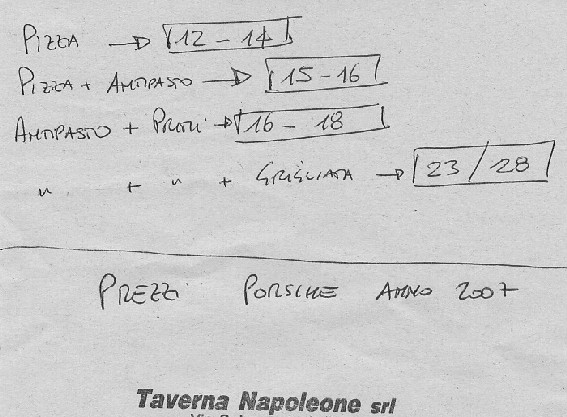 PIZZA → 12 - 14
PIZZA + ANTIPASTO → 15 - 16
ANTIPASTO + PRIMI → 16 - 18
" + " + GRIGLIATA → 23 / 28
PREZZI PORSCHE ANNO 2007
Taverna Napoleone srl